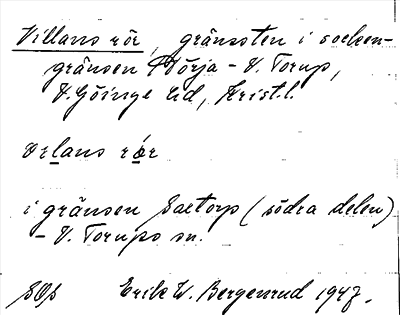 Villans rör, gränssten i socken-
gränsen Börja - V. Torup,
V. Göinge hd, Krist. l.
vɪlans rör
i gränsen Saxtorp (södra delen)
- V. Torups sn.
Erik W. Bergenrud 1947.